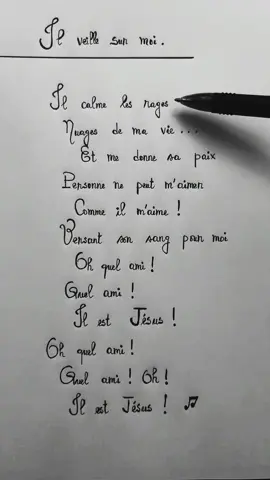 Il veille sur moi.
Il calme les rages
Nuages de ma vie...
Et me donne sa paix
Personne ne peut m'aimer
Comme il m'aime !
Versant son sang pour moi
Oh quel ami !
Quel ami !
Il est Jésus !
Oh quel ami !
Quel ami ! Oh !
Il est Jésus ! 🎵